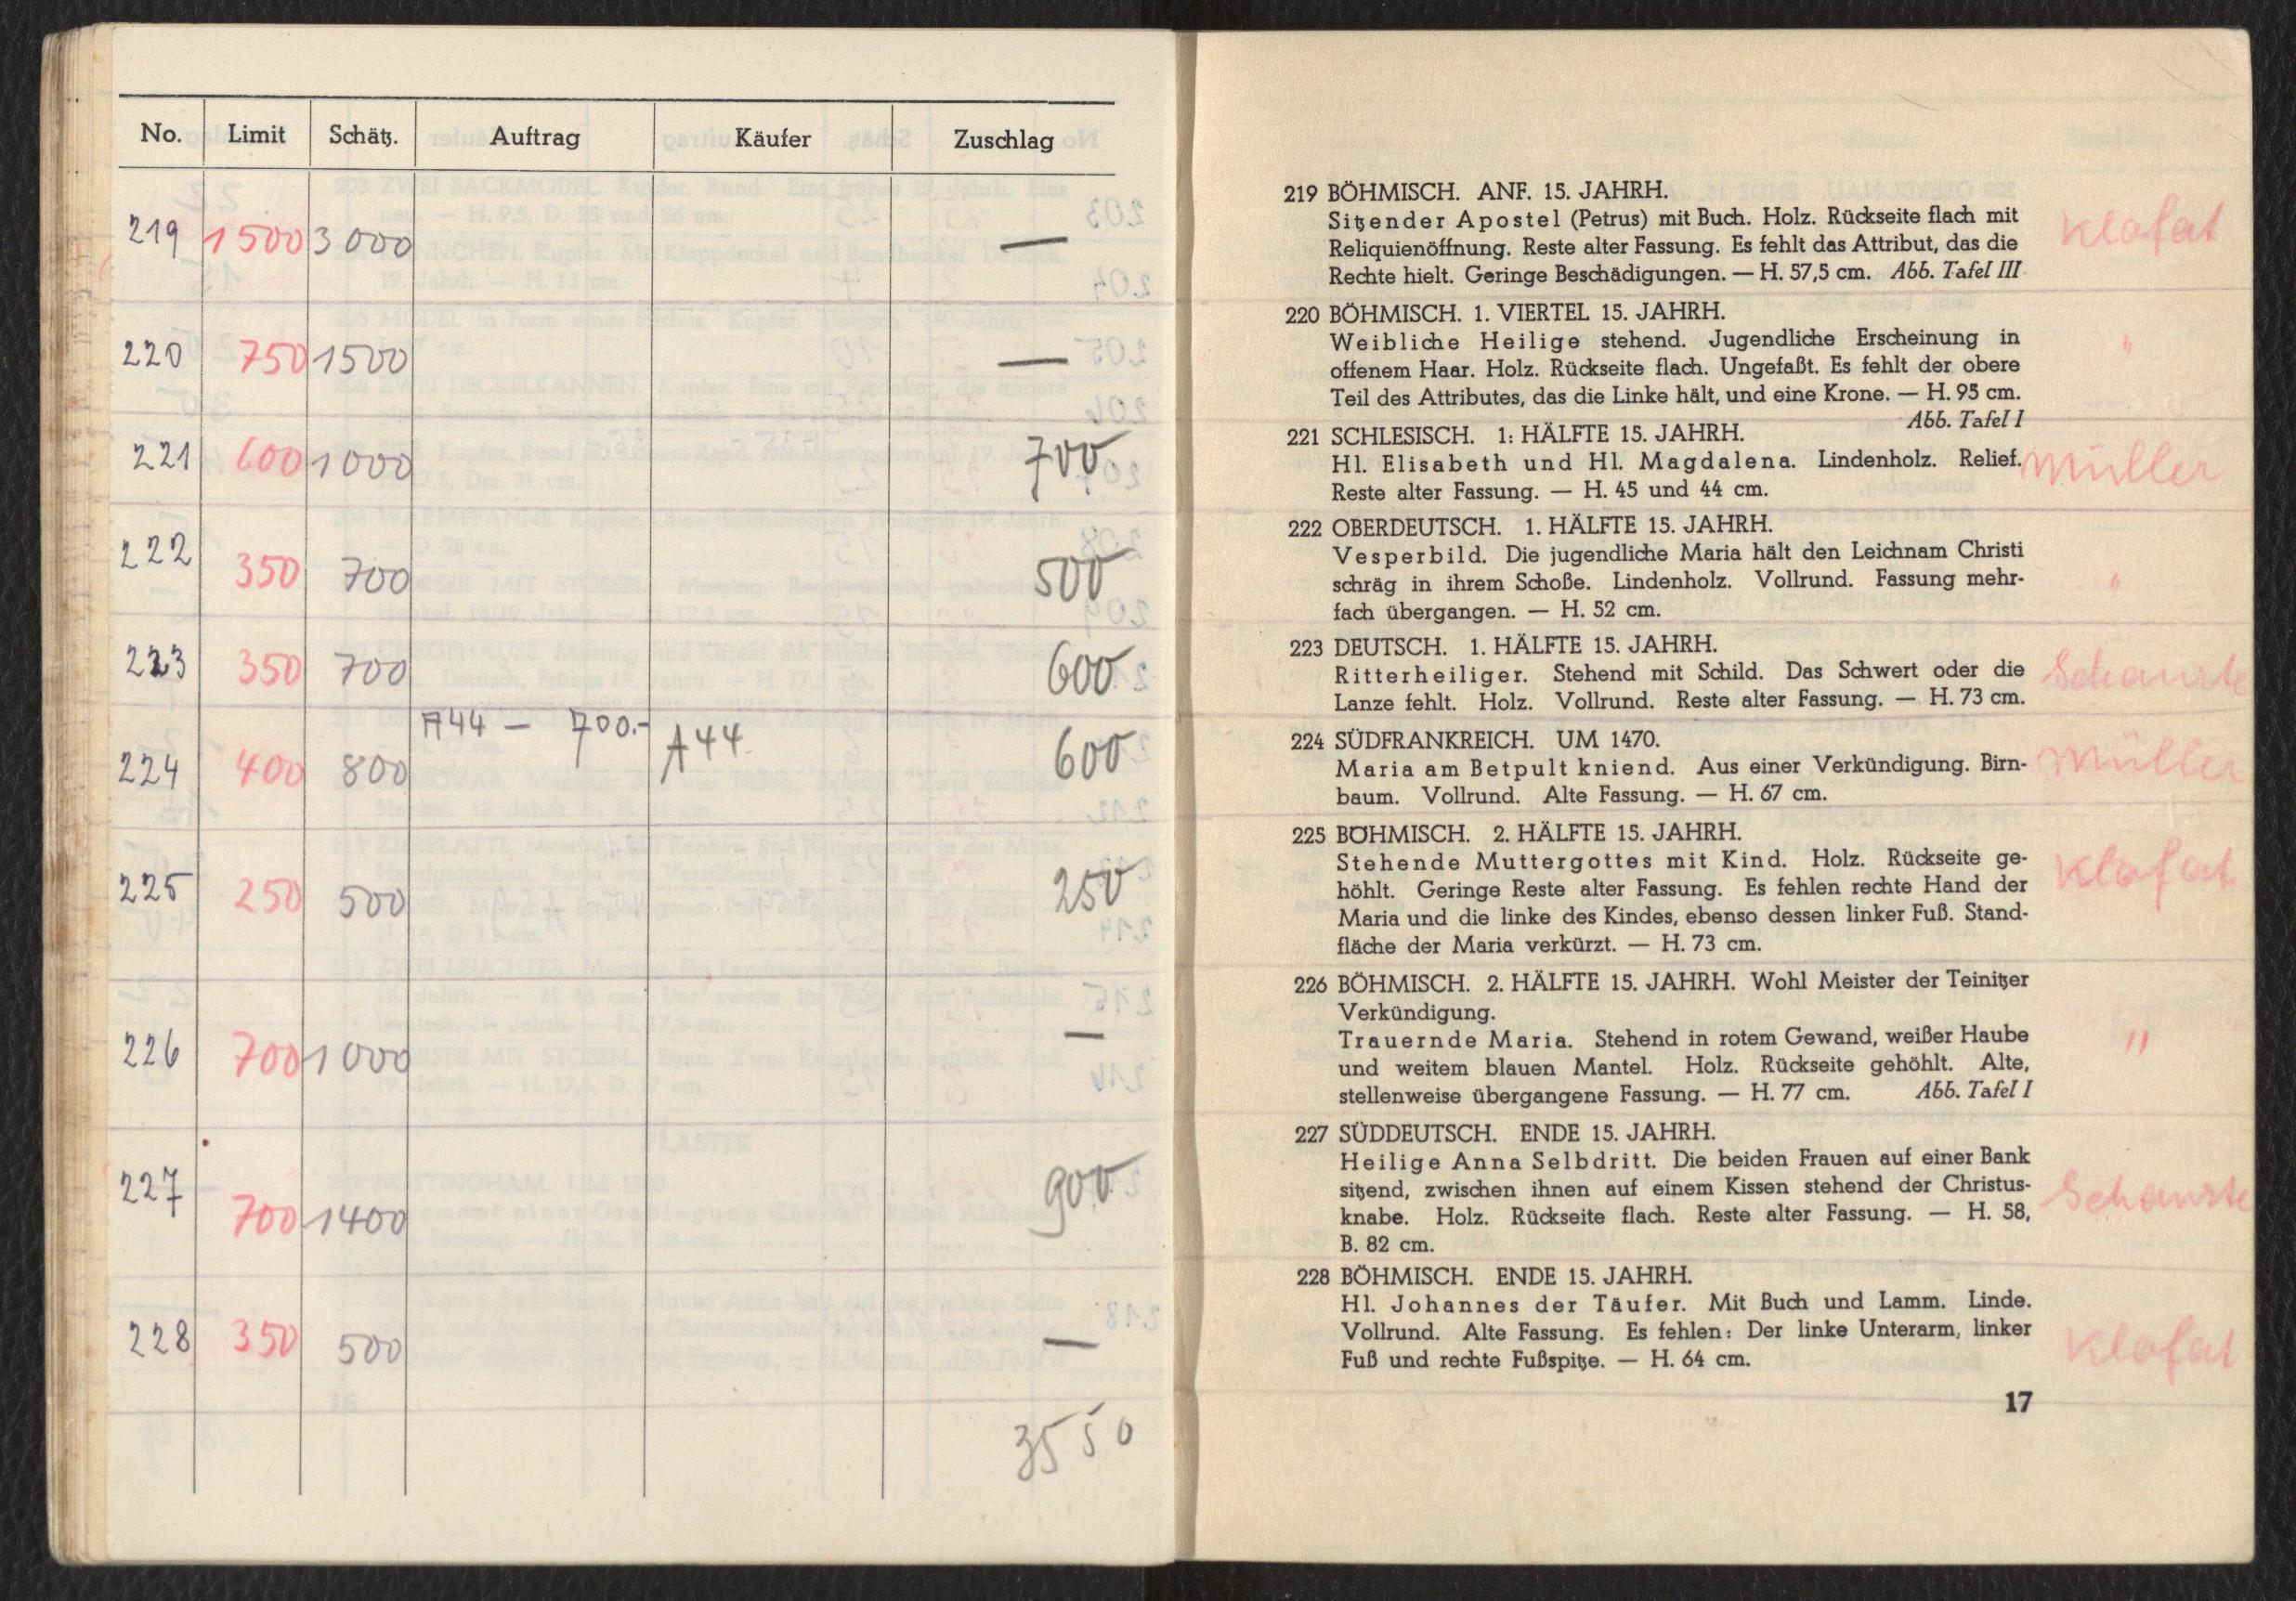 No. Limit Schätz. Auftrag Käufer Zuschlag
219 1500 3000 —
220 750 1500 —
221 600 1000 700
222 350 700 500
223 350 700 600
224 400 800 A44 — 700.- A44 600
225 250 500 250
226 700 1000 —
227 700 1400 900
228 350 500 —
3550
219 BÖHMISCH. ANF. 15. JAHRH.
Sitzender Apostel (Petrus) mit Buch. Holz. Rückseite flach mit Klafat
Reliquienöffnung. Reste alter Fassung. Es fehlt das Attribut, das die
Rechte hielt. Geringe Beschädigungen. — H. 57,5 cm. Abb. Tafel III
220 BÖHMISCH. 1. VIERTEL 15. JAHRH.
Weibliche Heilige stehend. Jugendliche Erscheinung in "
offenem Haar. Holz. Rückseite flach. Ungefaßt. Es fehlt der obere
Teil des Attributes, das die Linke hält, und eine Krone. — H. 95 cm.
Abb. Tafel I
221 SCHLESISCH. 1: HÄLFTE 15. JAHRH.
Hl. Elisabeth und Hl. Magdalena. Lindenholz. Relief. Müller
Reste alter Fassung. — H. 45 und 44 cm.
222 OBERDEUTSCH. 1. HÄLFTE 15. JAHRH.
Vesperbild. Die jugendliche Maria hält den Leichnam Christi
schräg in ihrem Schoße. Lindenholz. Vollrund. Fassung mehr- "
fach übergangen. — H. 52 cm.
223 DEUTSCH. 1. HÄLFTE 15. JAHRH.
Ritterheiliger. Stehend mit Schild. Das Schwert oder die
Lanze fehlt. Holz. Vollrund. Reste alter Fassung. — H. 73 cm.
224 SÜDFRANKREICH. UM 1470.
Maria am Betpult kniend. Aus einer Verkündigung. Birn- Müller
baum. Vollrund. Alte Fassung. — H. 67 cm.
225 BÖHMISCH. 2. HÄLFTE 15. JAHRH.
Stehende Muttergottes mit Kind. Holz. Rückseite ge- Klafat
höhlt. Geringe Reste alter Fassung. Es fehlen rechte Hand der
Maria und die linke des Kindes, ebenso dessen linker Fuß. Stand-
fläche der Maria verkürzt. — H. 73 cm.
226 BÖHMISCH. 2. HÄLFTE 15. JAHRH. Wohl Meister der Teinitzer
Verkündigung.
Trauernde Maria. Stehend in rotem Gewand, weißer Haube "
und weitem blauen Mantel. Holz. Rückseite gehöhlt. Alte,
stellenweise übergangene Fassung. — H. 77 cm. Abb. Tafel I
227 SÜDDEUTSCH. ENDE 15. JAHRH.
Heilige Anna Selbdritt. Die beiden Frauen auf einer Bank
sitzend, zwischen ihnen auf einem Kissen stehend der Christus-
knabe. Holz. Rückseite flach. Reste alter Fassung. — H. 58,
B. 82 cm.
228 BÖHMISCH. ENDE 15. JAHRH.
Hl. Johannes der Täufer. Mit Buch und Lamm. Linde.
Vollrund. Alte Fassung. Es fehlen: Der linke Unterarm, linker Klafat
Fuß und rechte Fußspitze. — H. 64 cm.
17